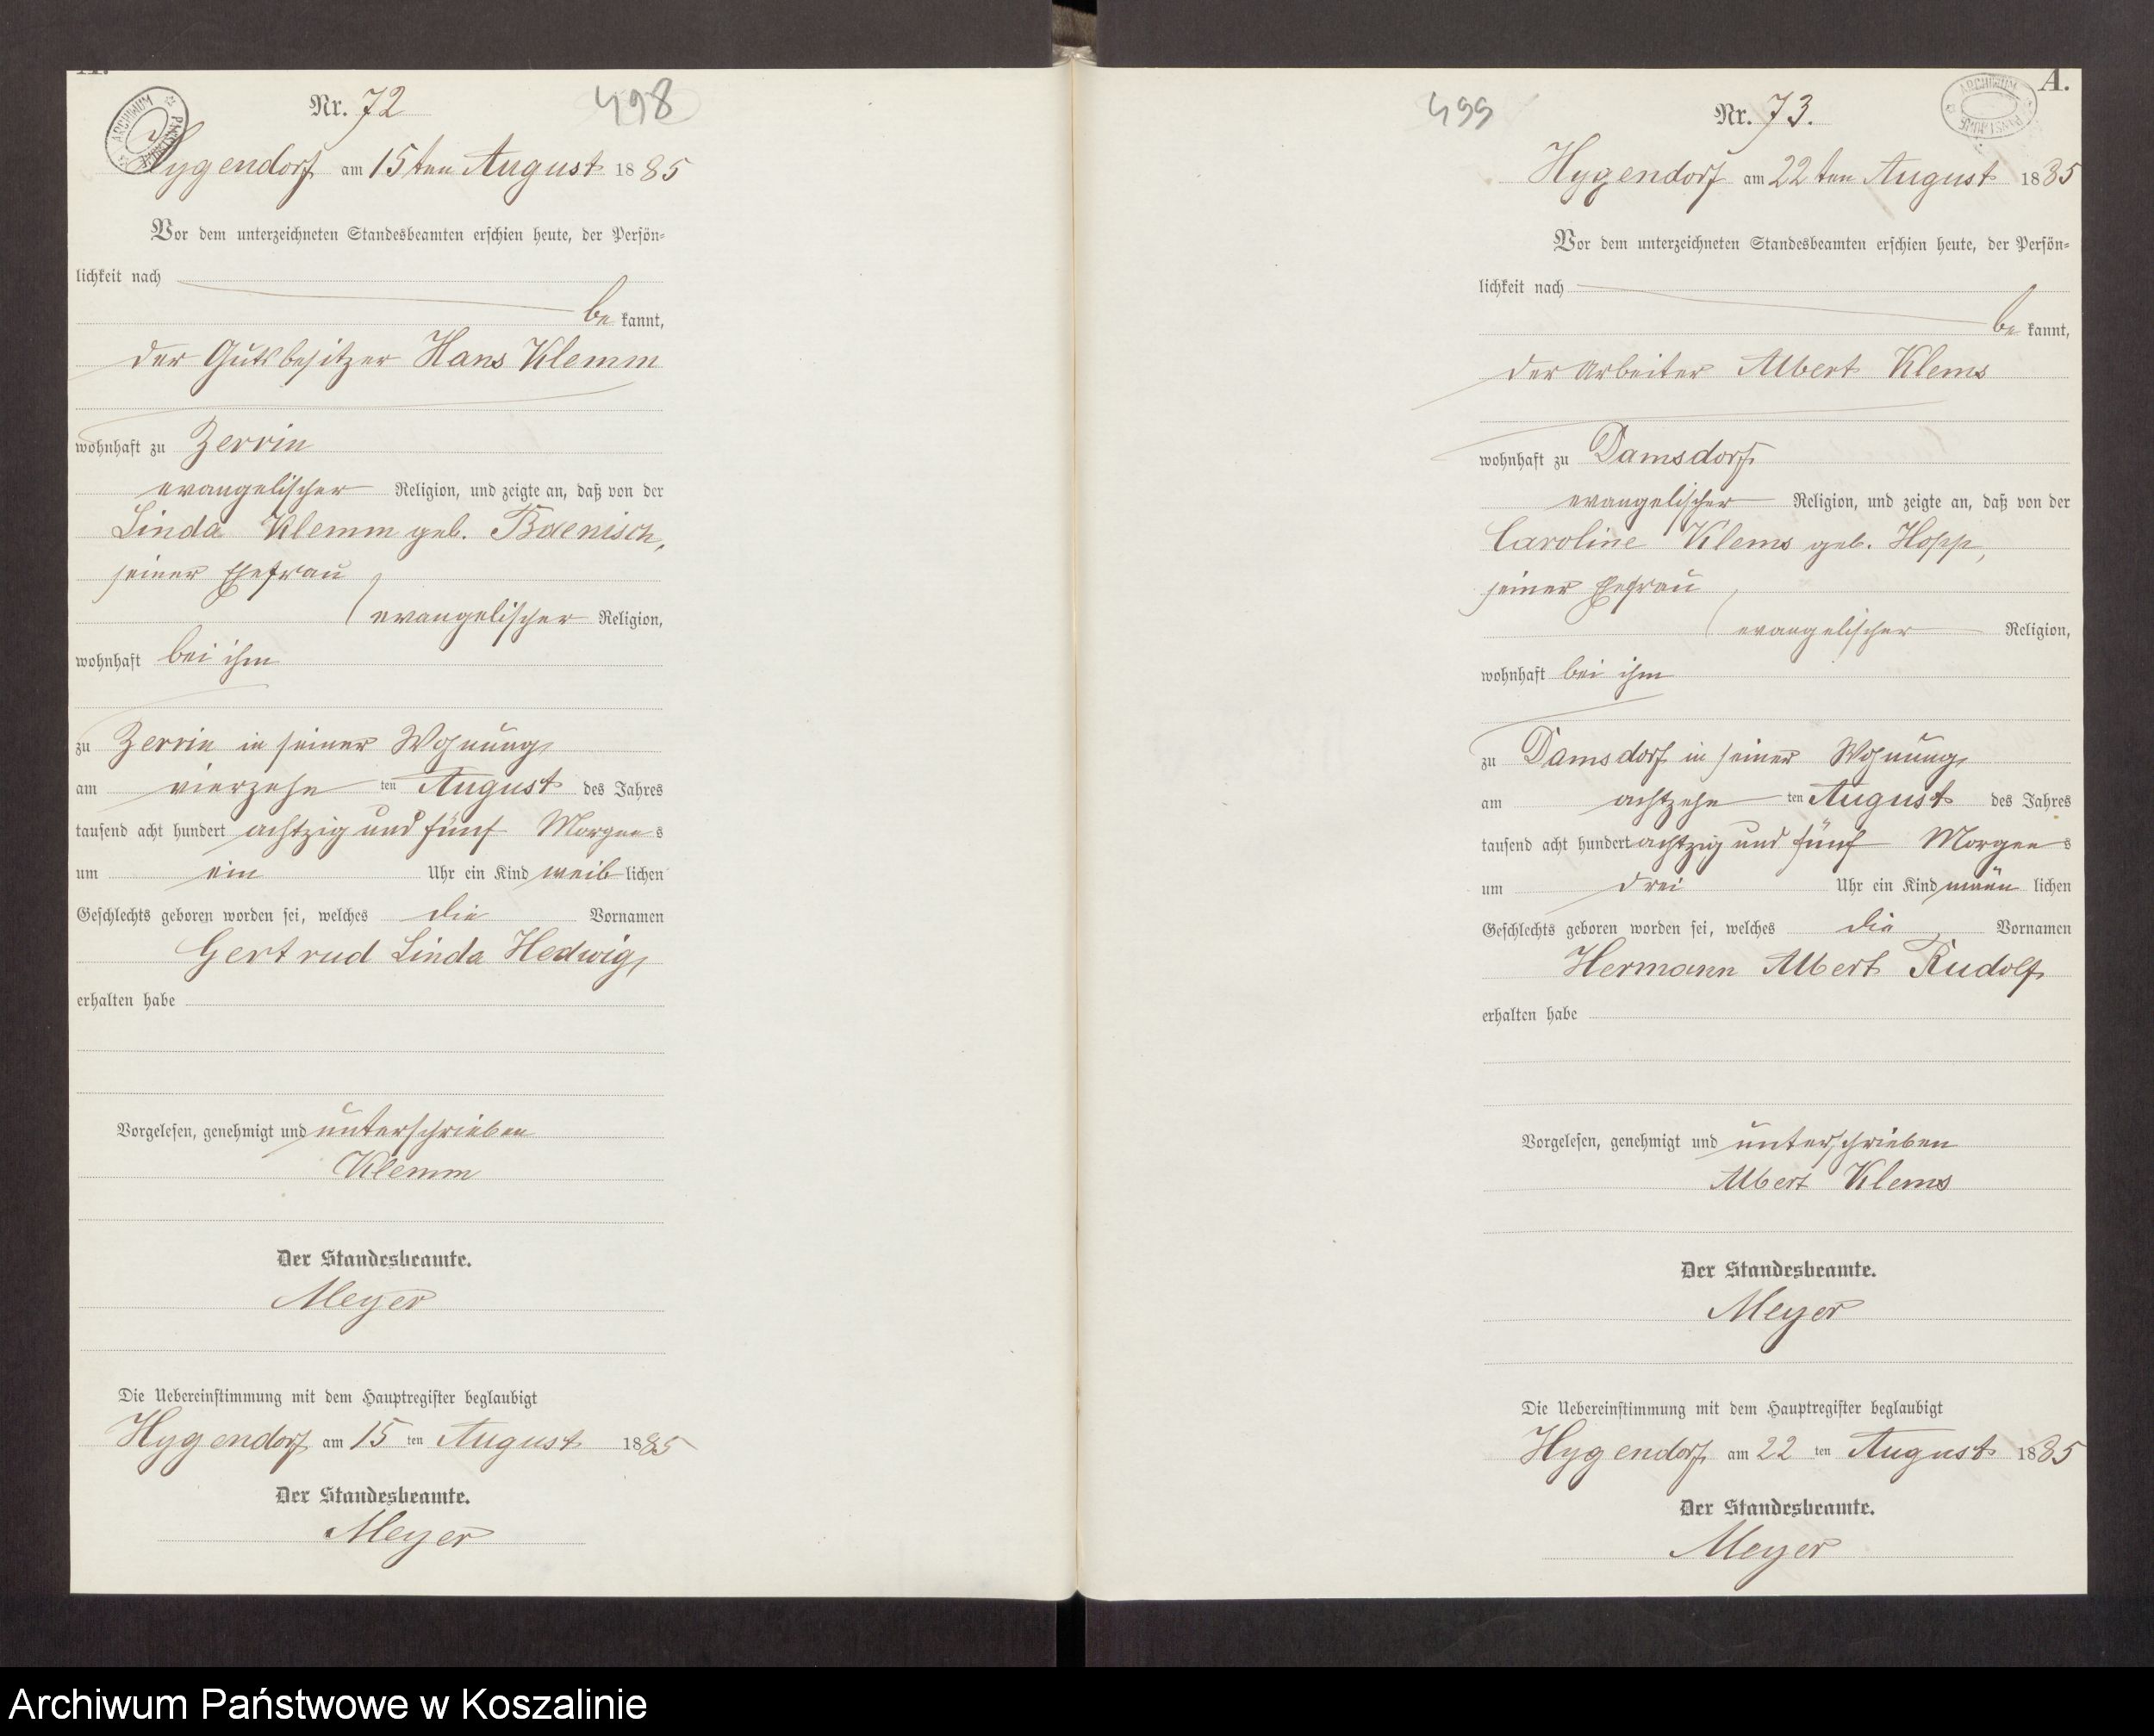 Nr. 72
498
Hygendorf am 15ten August 1885
Vor dem unterzeichneten Standesbeamten erschien heute, der Persön-
lichkeit nach
be kannt,
der Gutsbesitzer Hans Klemm
wohnhaft zu Zerrin
evangelischer Religion, und zeigte an, daß von der
Linda Klemm geb. Baenisch,
seiner Ehefrau
evangelischer Religion,
wohnhaft bei ihm
zu Zerrin in seiner Wohnung
am vierzehn ten August des Jahres
tausend acht hundert achtzig und fünf Morgens
um ein Uhr ein Kind weiblichen
Geschlechts geboren worden sei, welches die Vornamen
Gertrud Linda Hedwig
erhalten habe
Vorgelesen, genehmigt und unterschrieben
Klemm
Der Standesbeamte.
Meyer
Die Uebereinstimmung mit dem Hauptregister beglaubigt
Hygendorf am 15 ten August 1885
Der Standesbeamte.
Meyer
A.
499
Nr. 73.
Hygendorf am 22ten August 1885
Vor dem unterzeichneten Standesbeamten erschien heute, der Persön-
lichkeit nach
be kannt,
der Arbeiter Albert Klems
wohnhaft zu Damsdorf
evangelischer Religion, und zeigte an, daß von der
Caroline Klems geb. Hopp,
seiner Ehefrau
evangelischer Religion,
wohnhaft bei ihm
zu Damsdorf in seiner Wohnung
am achtzehn ten August des Jahres
tausend acht hundert achtzig und fünf Morgens
um drei Uhr ein Kind männ lichen
Geschlechts geboren worden sei, welches die Vornamen
Hermann Albert Rudolf
erhalten habe
Vorgelesen, genehmigt und unterschrieben
Albert Klems
Der Standesbeamte.
Meyer
Die Uebereinstimmung mit dem Hauptregister beglaubigt
Hygendorf am 22 ten August 1885
Der Standesbeamte.
Meyer
Archiwum Państwowe w Koszalinie